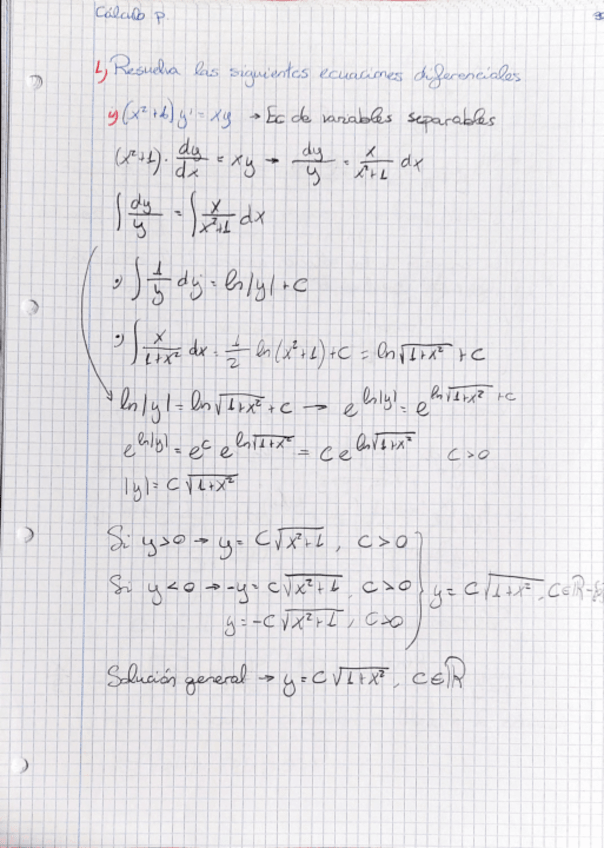 Cálculo P.
1) Resuelva las siguientes ecuaciones diferenciales
(x²+1) y' = xy → Ec de variables separables
(x²+1) · dy/dx = xy → dy/y = x/(x²+1) dx
∫ dy/y = ∫ x/(x²+1) dx
•) ∫ 1/y dy = ln|y| + C
•) ∫ x/(1+x²) dx = 1/2 ln(x²+1) + C = ln√(1+x²) + C
ln|y| = ln√(1+x²) + C → e^(ln|y|) = e^(ln√(1+x²) + C)
e^(ln|y|) = e^C e^(ln√(1+x²)) = C e^(ln√(1+x²)) C>0
|y| = C√(1+x²)
Si y>0 → y = C√(x²+1), C>0
Si y<0 → -y = C√(x²+1), C>0 } y = C√(1+x²), C∈ℝ-
y = -C√(x²+1), C>0
Solución general → y = C√(1+x²), C∈ℝ